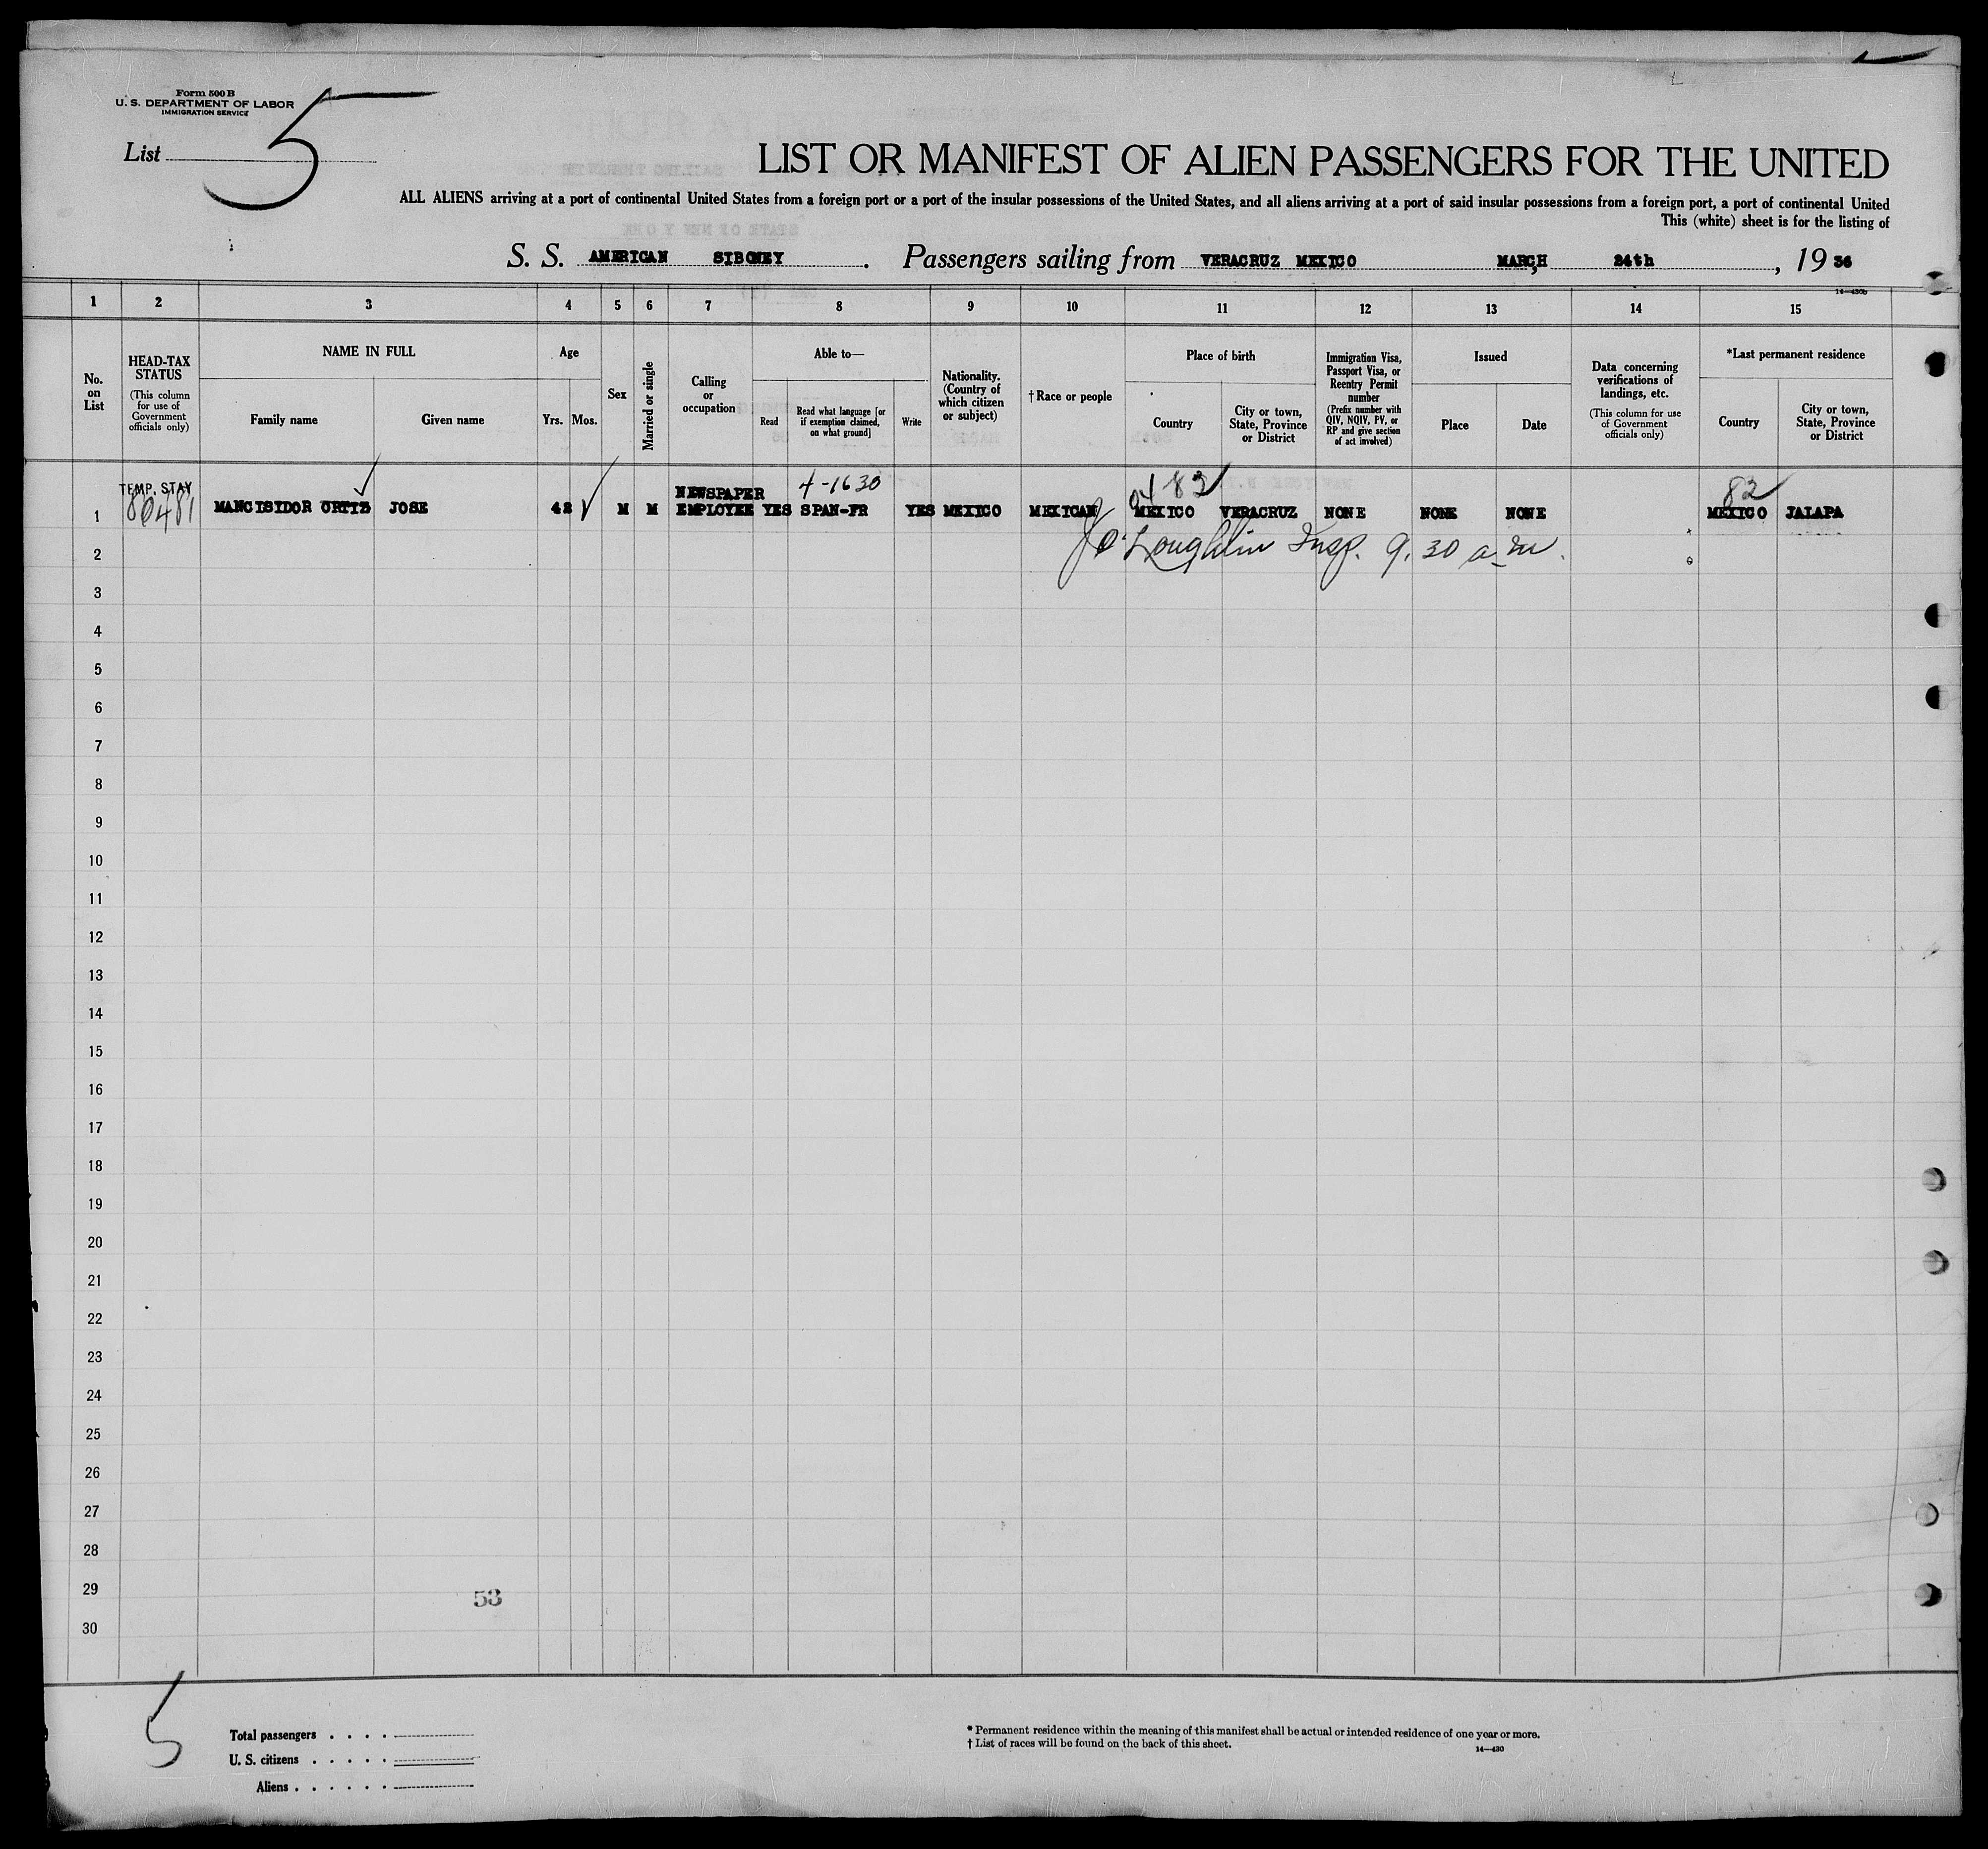 Form 500 B
U. S. DEPARTMENT OF LABOR
IMMIGRATION SERVICE
List 5
LIST OR MANIFEST OF ALIEN PASSENGERS FOR THE UNITED
ALL ALIENS arriving at a port of continental United States from a foreign port or a port of the insular possessions of the United States, and all aliens arriving at a port of said insular possessions from a foreign port, a port of continental United
This (white) sheet is for the listing of
S. S. AMERICAN SIBONEY. Passengers sailing from VERACRUZ MEXICO MARCH, 24th, 1936
14—430b
1 2 3 4 5 6 7 8 9 10 11 12 13 14 15
No. on List
HEAD-TAX STATUS
(This column for use of Government officials only)
NAME IN FULL
Family name
Given name
Age
Yrs. Mos.
Sex
Married or single
Calling or occupation
Able to—
Read
Read what language [or if exemption claimed, on what ground]
Write
Nationality. (Country of which citizen or subject)
† Race or people
Place of birth
Country
City or town, State, Province or District
Immigration Visa, Passport Visa, or Reentry Permit number
(Prefix number with QIV, NQIV, PV, or RP and give section of act involved)
Issued
Place
Date
Data concerning verifications of landings, etc.
(This column for use of Government officials only)
*Last permanent residence
Country
City or town, State, Province or District
TEMP. STAY NEWSPAPER 4-1630 82 82
1 MANCISIDOR ORTIZ JOSE 42 M M EMPLOYEE YES SPAN-FR YES MEXICO MEXICAN MEXICO VERACRUZ NONE NONE NONE MEXICO JALAPA
2 O'Loughlin Insp. 9.30 a.m.
3
4
5
6
7
8
9
10
11
12
13
14
15
16
17
18
19
20
21
22
23
24
25
26
27
28
29 53
30
5
Total passengers . . . .
U. S. citizens . . . . .
Aliens . . . . . .
* Permanent residence within the meaning of this manifest shall be actual or intended residence of one year or more.
† List of races will be found on the back of this sheet.
14—430